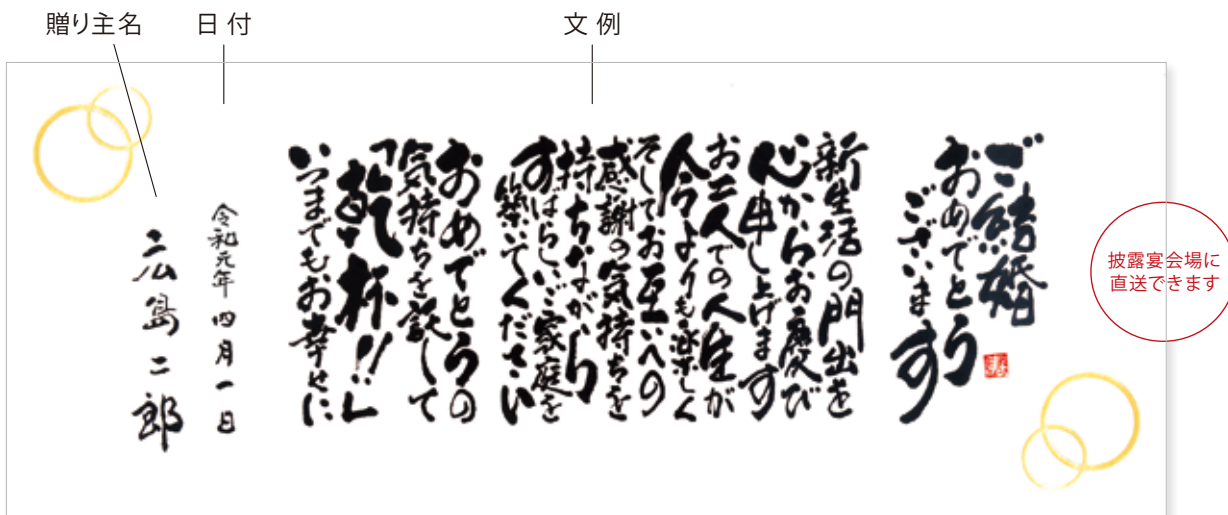 贈り主名
日付
文例
ご結婚
おめでとう
ございます
新生活の門出を
心からお慶び
申し上げます
お二人での人生が
今よりも楽しく
そしてお互いへの
感謝の気持ちを
持ちながら
すばらしいご家庭を
築いてください
おめでとうの
気持ちを込して
「乾杯!!」
いつまでもお幸せに
令和元年 四月一日
広島二郎
寿
披露宴会場に
直送できます